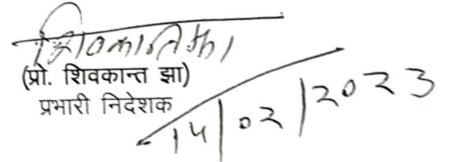 शिवकान्तझा
(प्रो. शिवकान्त झा)
प्रभारी निदेशक
14/02/2023